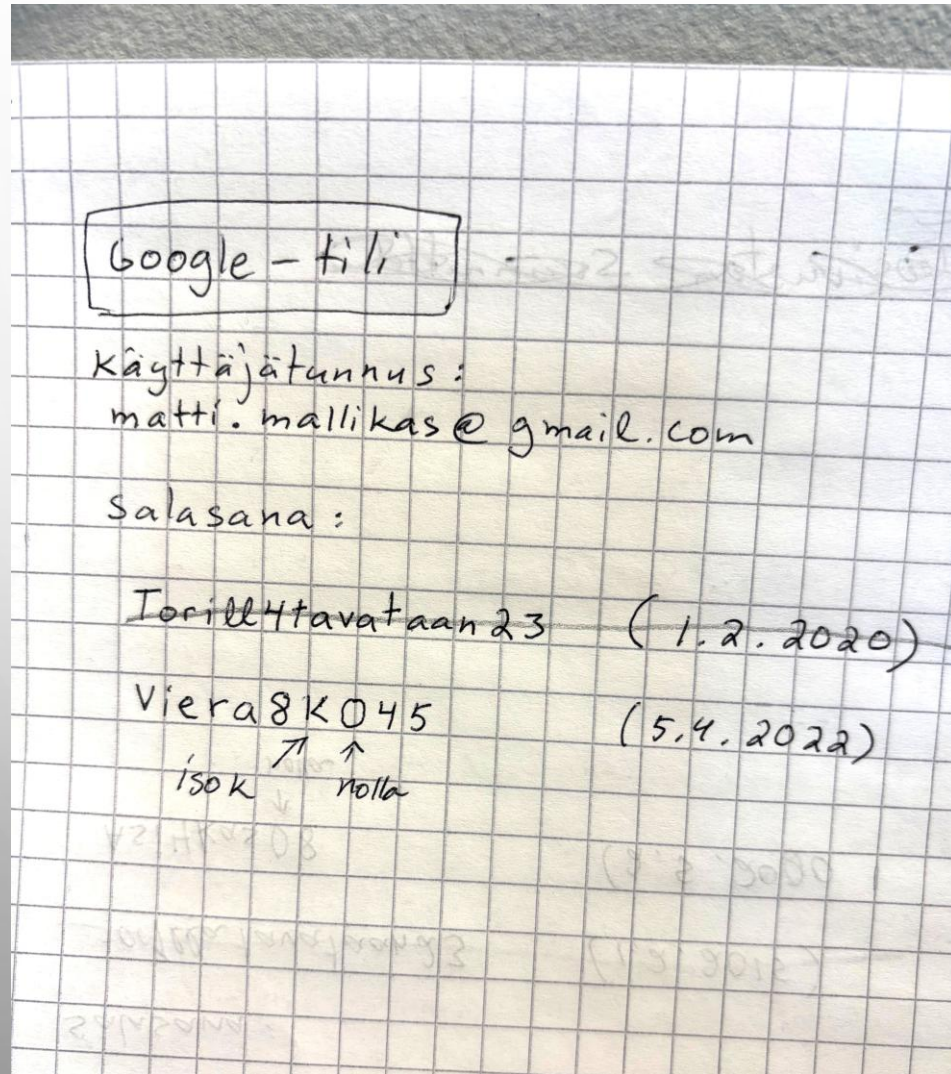 Google-tili
Käyttäjätunnus:
matti.mallikas@gmail.com
Salasana:
Torill4tavataan23 (1.2.2020)
Viera8K045 (5.4.2022)
iso K nolla